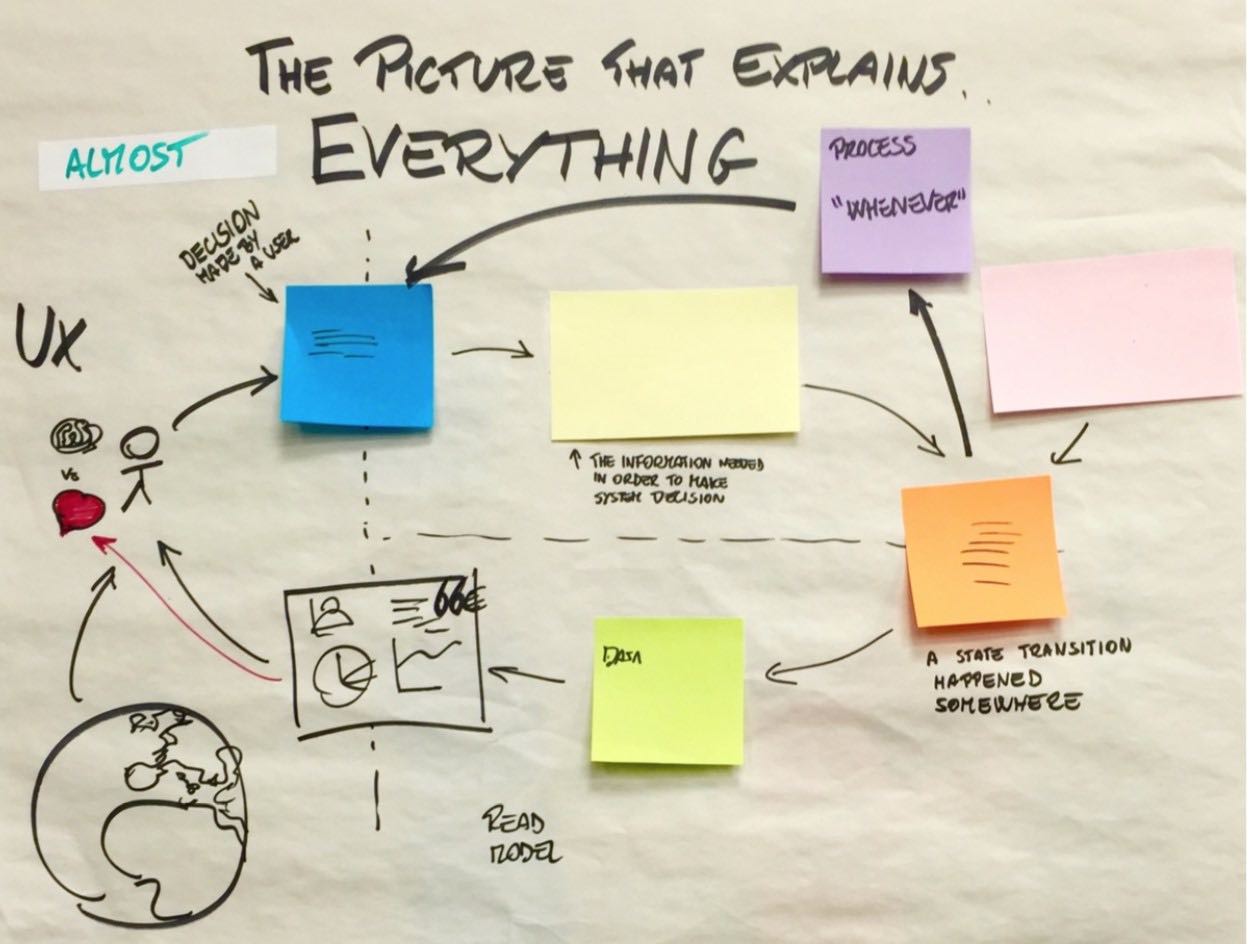 THE PICTURE THAT EXPLAINS..
ALMOST
EVERYTHING
PROCESS
"WHENEVER"
DECISION
MADE BY
A USER
UX
VS
↑ THE INFORMATION NEEDED
IN ORDER TO MAKE
SYSTEM DECISION
66€
DATA
A STATE TRANSITION
HAPPENED
SOMEWHERE
READ
MODEL